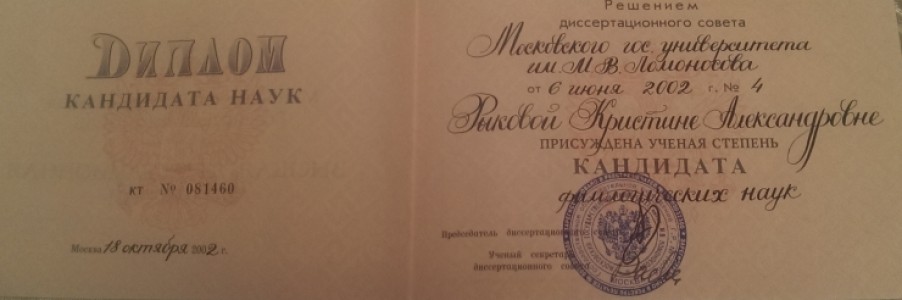 ДИПЛОМ
КАНДИДАТА НАУК
КТ № 081460
Москва 18 октября 2002 г.
Решением
диссертационного совета
Московского гос. университета
им. М.В. Ломоносова
от 6 июня 2002 г. № 4
Рыковой Кристине Александровне
ПРИСУЖДЕНА УЧЕНАЯ СТЕПЕНЬ
КАНДИДАТА
филологических наук
Председатель
Ученый